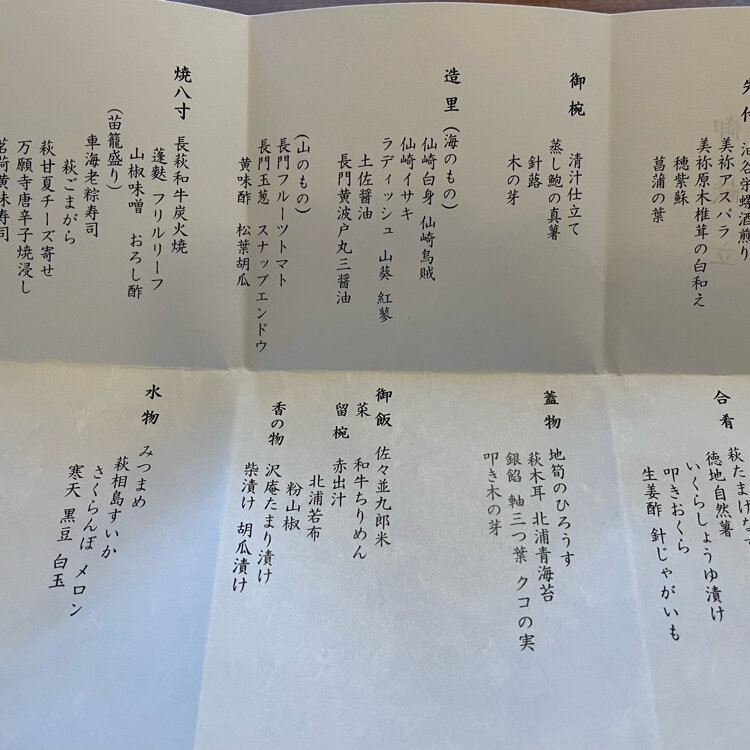 先付
油谷栄螺酒煎り
美祢アスパラ
美祢原木椎茸の白和え
穂紫蘇
菖蒲の葉
御椀
清汁仕立て
蒸し鮑の真薯
針蕗
木の芽
造里
(海のもの)
仙崎白身 仙崎烏賊
仙崎イサキ
ラディッシュ 山葵 紅蓼
土佐醤油
長門黄波戸丸三醤油
(山のもの)
長門フルーツトマト
長門玉葱 スナップエンドウ
黄味酢 松葉胡瓜
焼八寸
長萩和牛炭火焼
蓬麩 フリルリーフ
山椒味噌 おろし酢
(苗籠盛り)
車海老粽寿司
萩ごまがら
萩甘夏チーズ寄せ
万願寺唐辛子焼浸し
茗荷黄味寿司
合肴
萩たまげなす
徳地自然薯
いくらしょうゆ漬け
叩きおくら
生姜酢 針じゃがいも
蓋物
地筍のひろうす
萩木耳 北浦青海苔
銀餡 軸三つ葉 クコの実
叩き木の芽
御飯 佐々並九郎米
菜 和牛ちりめん
留椀 赤出汁
北浦若布
粉山椒
香の物 沢庵たまり漬け
柴漬け 胡瓜漬け
水物
みつまめ
萩相島すいか
さくらんぼ メロン
寒天 黒豆 白玉